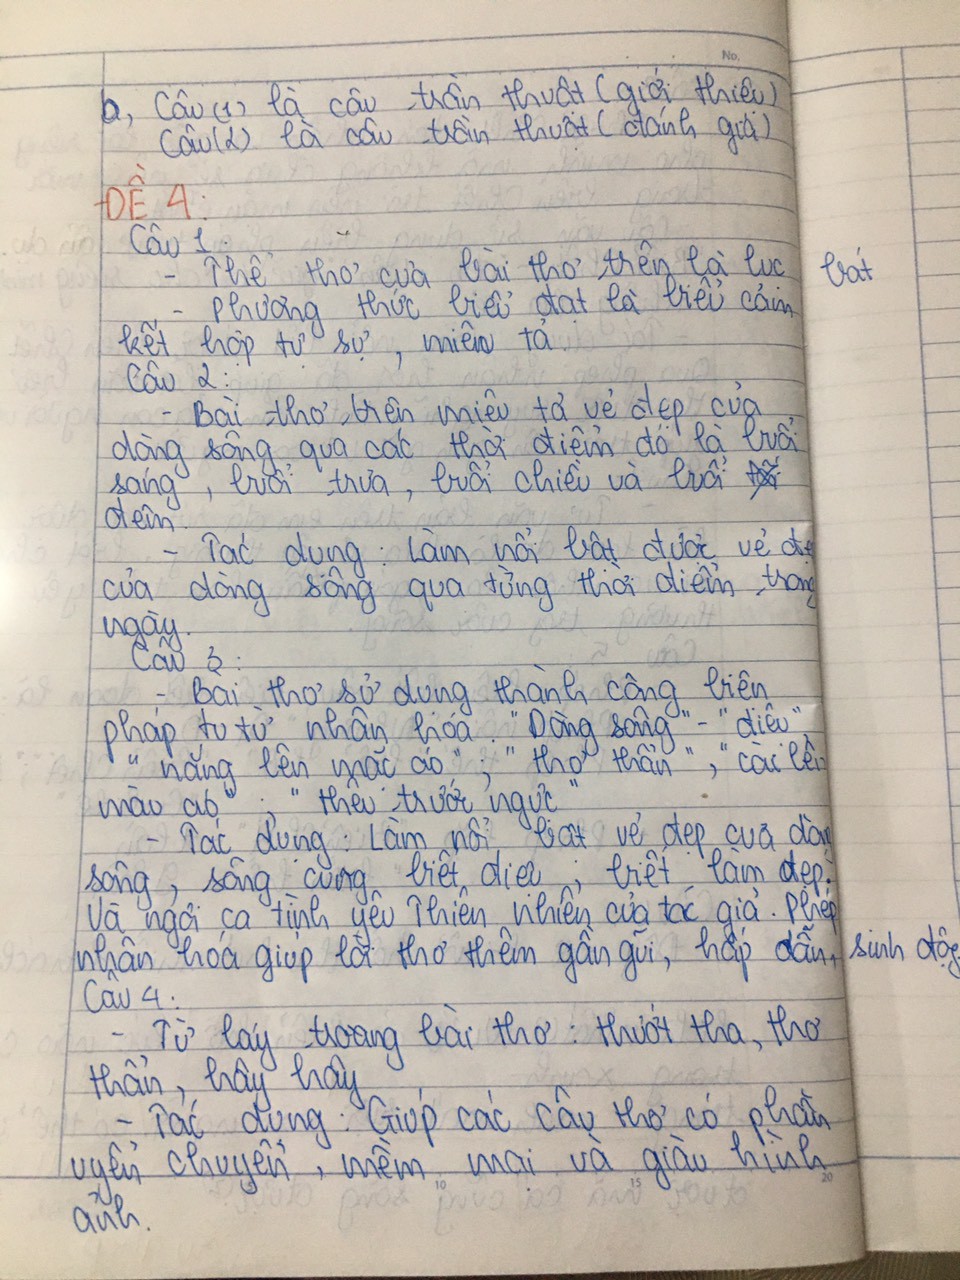 No.
b, Câu(1) là câu trần thuật (giới thiệu)
Câu(2) là câu trần thuật (đánh giá)
ĐỀ 4:
Câu 1:
Thể thơ của bài thơ trên là lục bát
- Phương thức biểu đạt là biểu cảm
kết hợp tự sự, miêu tả.
Câu 2:
- Bài thơ trên miêu tả vẻ đẹp của
dòng sông qua các thời điểm đó là buổi
sáng, buổi trưa, buổi chiều và buổi
đêm
- Tác dụng: Làm nổi bật được vẻ đẹ
của dòng sông qua từng thời điểm trong
ngày.
Câu 3:
- Bài thơ sử dụng thành công biện
pháp tu từ nhân hóa. "Dòng sông" - "điệu"
"nắng lên mặc áo"; "thơ thẩn", "cài lên
màu áo"; "thêu trước ngực"
- Tác dụng: Làm nổi bật vẻ đẹp của dòng
sông, sông cũng biết điệu, biết làm đẹp.
Và ngợi ca tình yêu Thiên nhiên của tác giả. Phép
nhân hóa giúp lời thơ thêm gần gũi, hấp dẫn, sinh động
Câu 4:
- Từ láy trong bài thơ: thướt tha, thơ
thẩn, hây hây
- Tác dụng: Giúp các câu thơ có phần
uyển chuyển, mềm mại và giàu hình
ảnh.
10 15 20